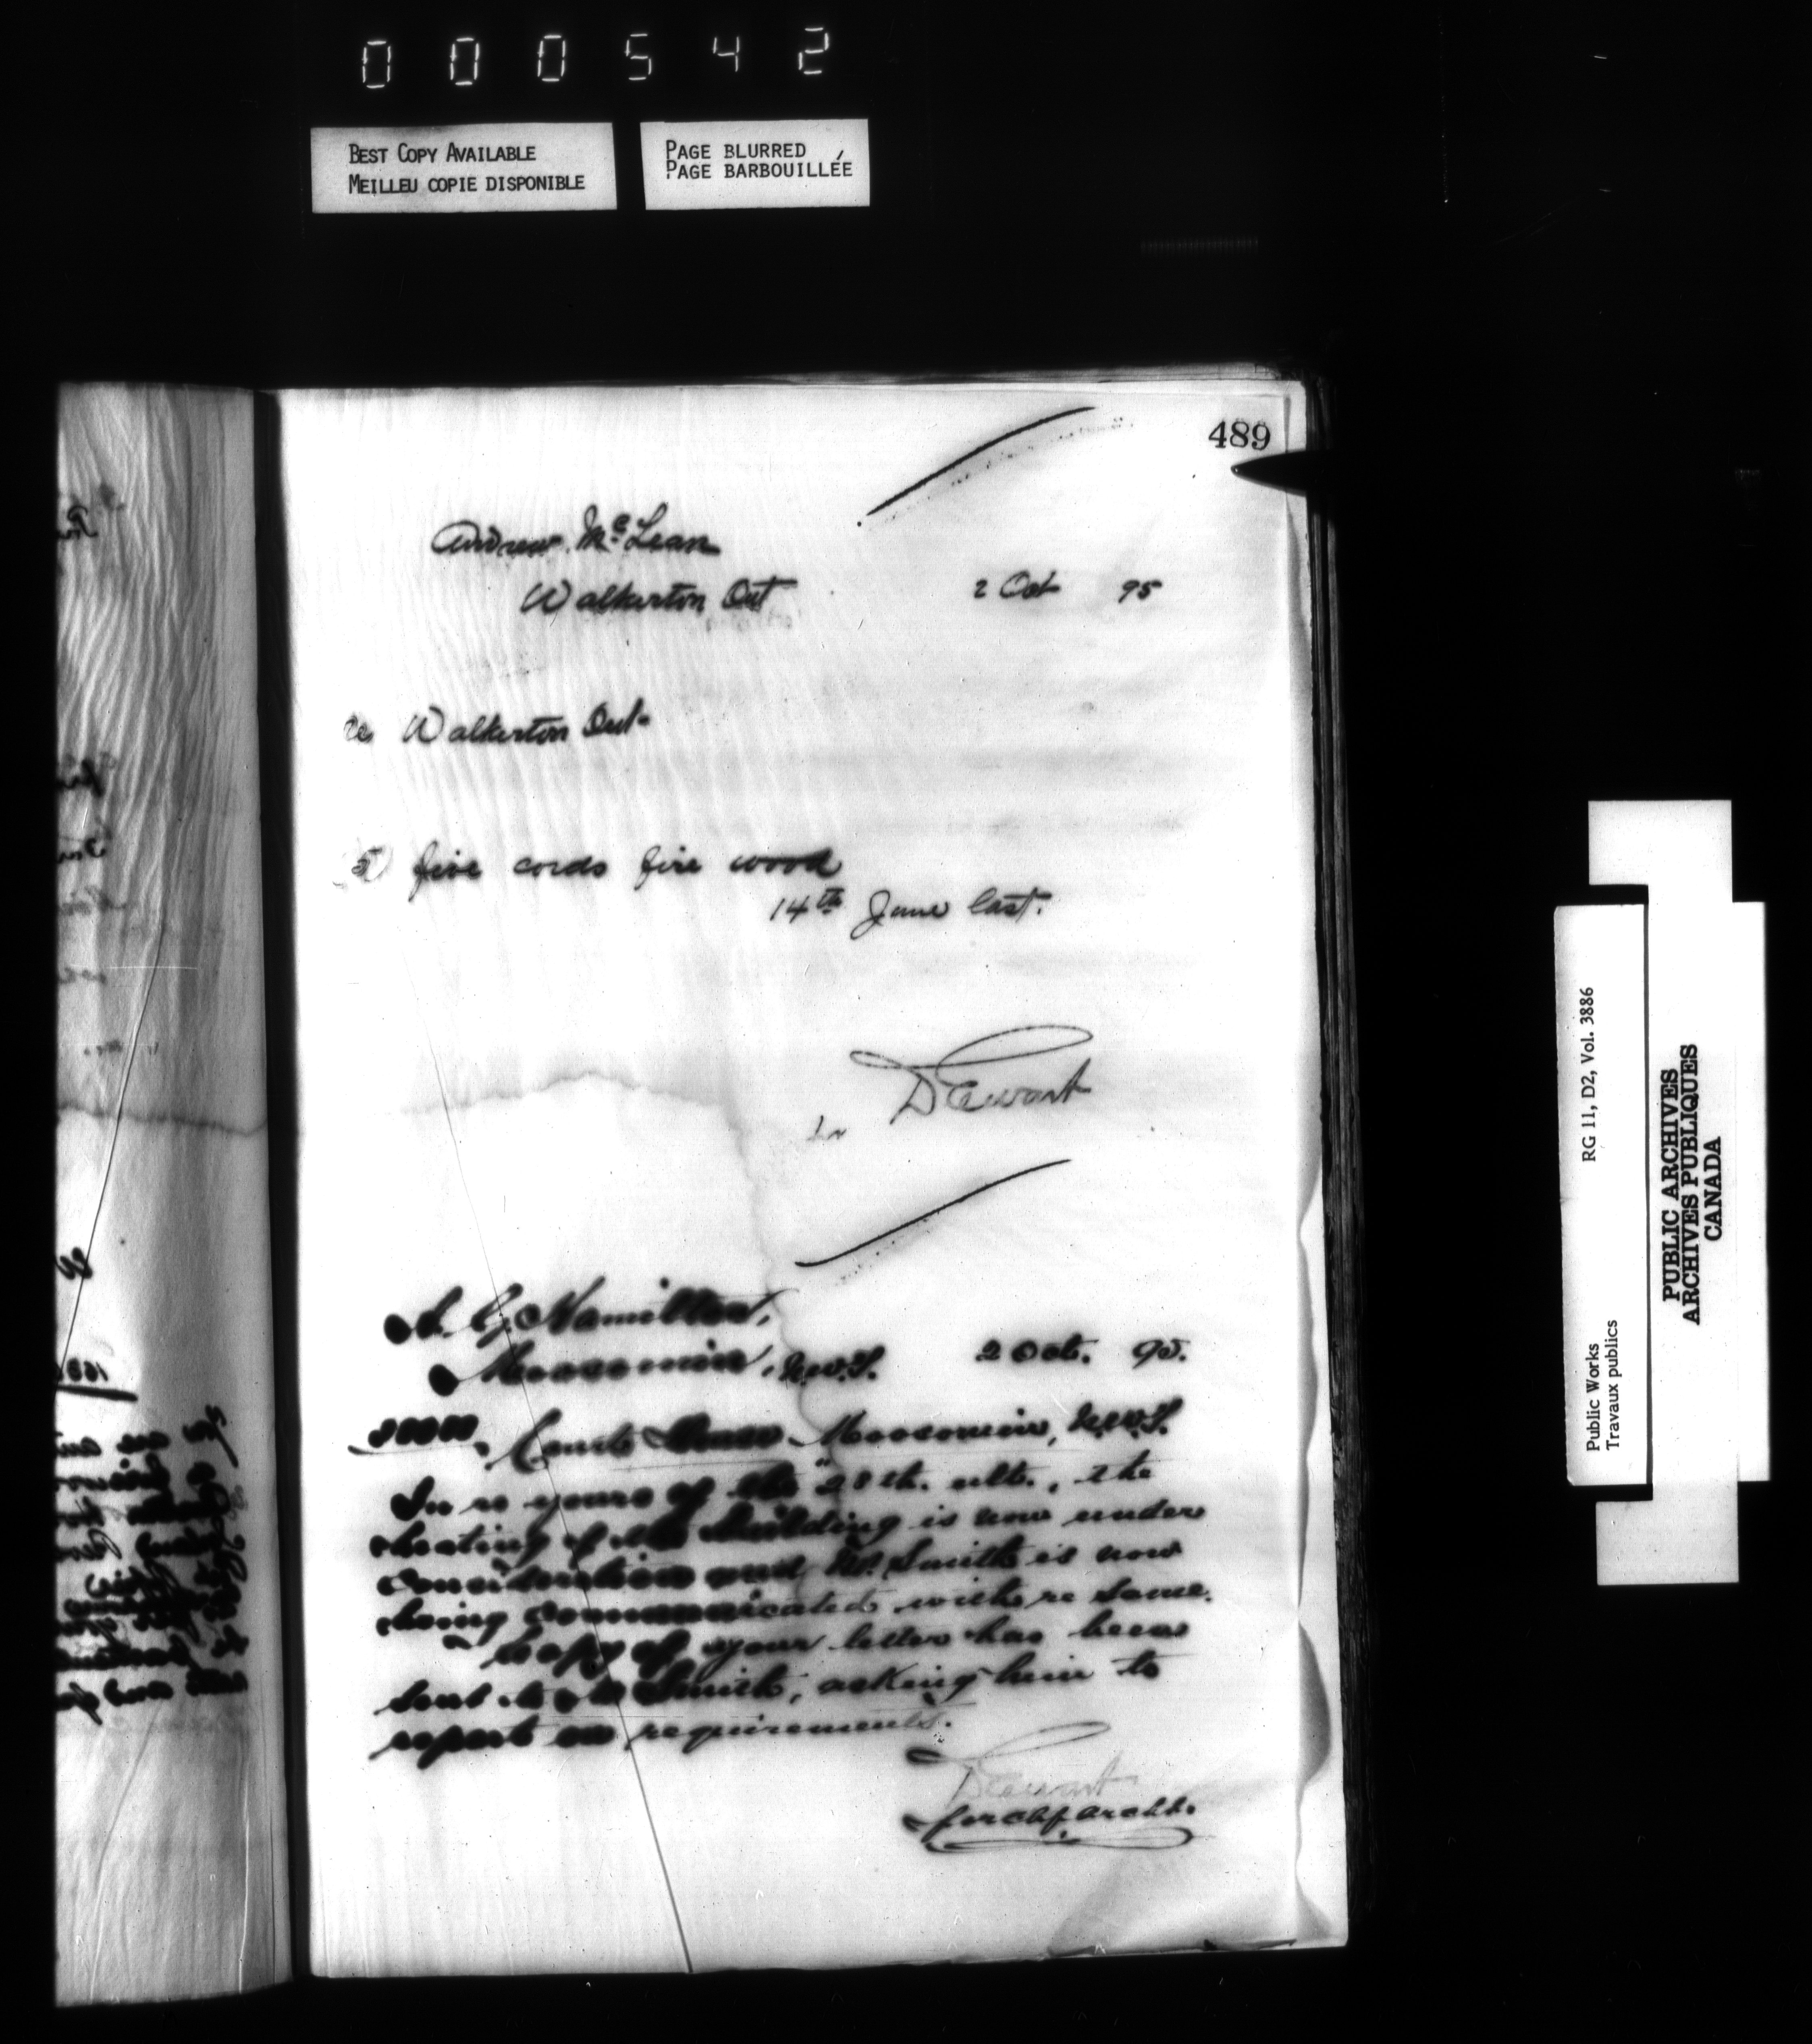 000542
BEST COPY AVAILABLE
MEILLEU COPIE DISPONIBLE
PAGE BLURRED
PAGE BARBOUILLÉE
489
Andrew McLean
Walkerton Ont
2 Oct 95
re Walkerton Ont
5 five cords fire wood
14th June last.
DEwart
A. G. Hamilton,
Moosomin, N.W.T. 2 Oct. 95.
Court House Moosomin, N.W.T.
In re yours of the 28th. ulto., the
heating of the building is now under
consideration and Mr. Smith is now
being communicated with re same.
Copy of your letter has been
sent to Mr Smith, asking him to
report on requirements.
DEwart
for chf. archt.
RG 11, D2, Vol. 3886
Public Works
Travaux publics
PUBLIC ARCHIVES
ARCHIVES PUBLIQUES
CANADA